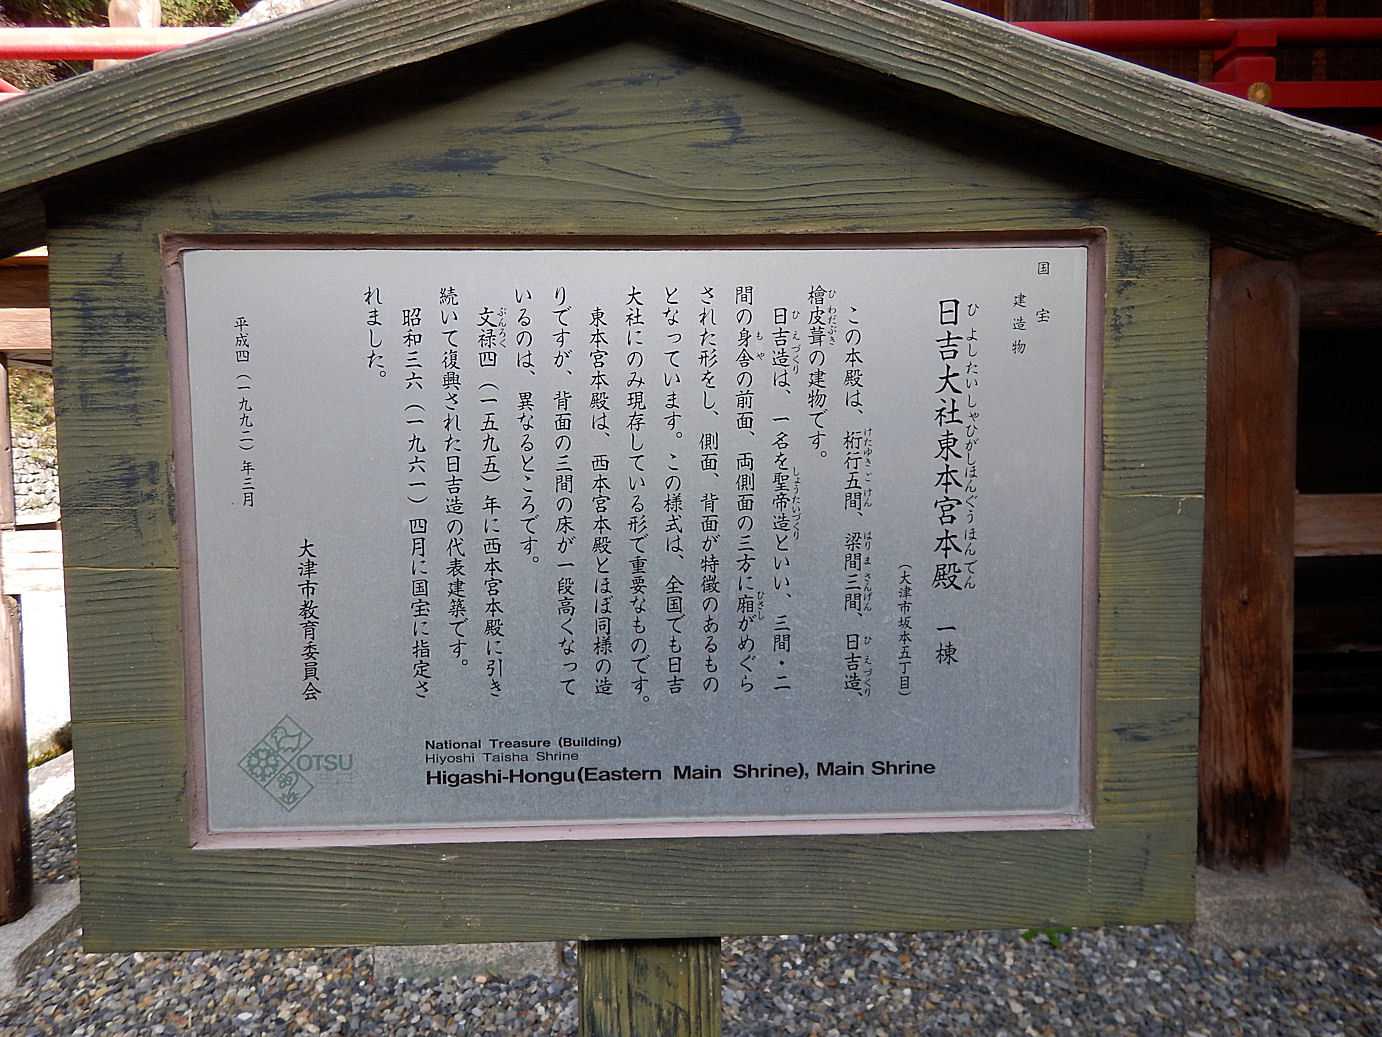 国宝
建造物
日吉大社東本宮本殿　一棟
ひよしたいしゃひがしほんぐうほんでん
（大津市坂本五丁目）
この本殿は、桁行五間、梁間三間、日吉造、
けたゆきごけん　はりまさんげん　ひえづくり
檜皮葺の建物です。
ひわだぶき
日吉造は、一名を聖帝造といい、三間・二
ひえづくり　しょうたいづくり
間の身舎の前面、両側面の三方に廂がめぐら
もや　ひさし
された形をし、側面、背面が特徴のあるもの
となっています。この様式は、全国でも日吉
大社にのみ現存している形で重要なものです。
東本宮本殿は、西本宮本殿とほぼ同様の造
りですが、背面の三間の床が一段高くなって
いるのは、異なるところです。
文禄四（一五九五）年に西本宮本殿に引き
ぶんろく
続いて復興された日吉造の代表建築です。
昭和三六（一九六一）四月に国宝に指定さ
れました。
大津市教育委員会
平成四（一九九二）年三月
OTSU
National Treasure (Building)
Hiyoshi Taisha Shrine
Higashi-Hongu(Eastern Main Shrine), Main Shrine